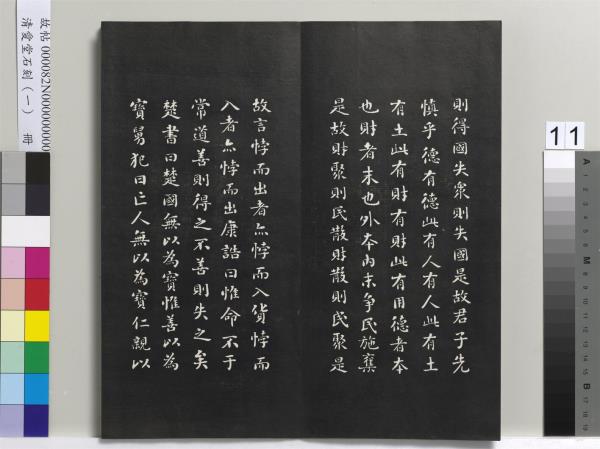 則得國失衆則失國是故君子先
慎乎德有德此有人有人此有土
有土此有財有財此有用德者本
也財者末也外本內末爭民施奪
是故財聚則民散財散則民聚是
故言悖而出者亦悖而入貨悖而
入者亦悖而出康誥曰惟命不于
常道善則得之不善則失之矣
楚書曰楚國無以為寶惟善以為
寶舅犯曰亡人無以為寶仁親以
故帖 000082N000000000
清愛堂石刻（一） 冊
11
A 1 2 3 4 5 6 M 8 9 10 11 12 13 14 15 B 17 18 19